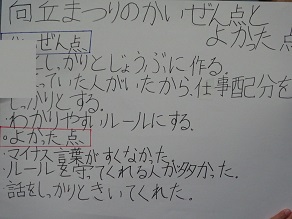 向丘まつりのかいぜん点と
よかった点
ぜん点
しっかりとじょうぶに作る。
っていた人がいたから、仕事配分を
しっかりとする。
・わかりやすいルールにする。
。よかった点
・マイナス言葉がすくなかった。
・ルールを守ってくれる人が多かった。
・話をしっかりときいてくれた。